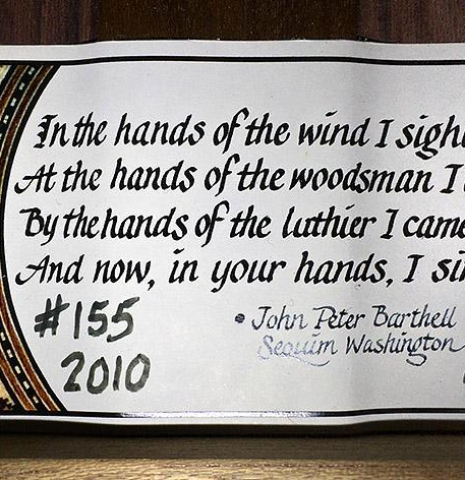 In the hands of the wind I sighe
At the hands of the woodsman I
By the hands of the luthier I came
And now, in your hands, I si
#155
• John Peter Barthell
2010
Sequim Washington